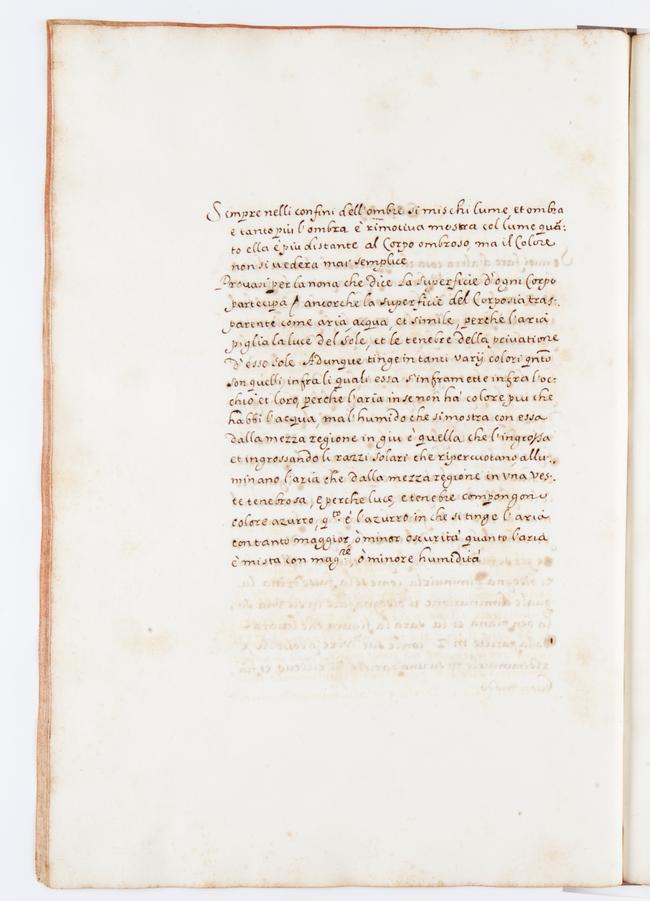 Sempre nelli confini dell'ombre si mischi lume, et ombra
e tanto più l'ombra è rimotiva mostra col lume quā:
to ella è piu distante al Corpo ombroso, ma il Colore
non si vedera mai semplice
Provasi per la nona che dice La superficie d'ogni Corpo
partecipa / ancorche la superficie del Corpo sia tras:.
parente come aria acqua, et simile, perche l'aria
piglia la luce del sole, et le tenebre della privatione
d'esso sole Adunque tinge in tanti varij colori qnto
son quelli infra li quali essa s'inframette infra l'oc:
chio, et loro, perche l'aria in se non ha' colore piu che
habbi l'acqua, ma l'humido che si mostra con essa
dalla mezza regione in giu è quella che l'ingrossa
et ingrossando li razzi solari che ripercuotano, allu:.
minano l'aria che dalla mezza regione in una ves:.
te tenebrosa, e perche luce, e tenebre compongono
colore azurro, qto è l'azurro in che si tinge l'aria
con tanto maggior, ò minor oscurità quanto l'aria
è mista con magre, ò minore humidità